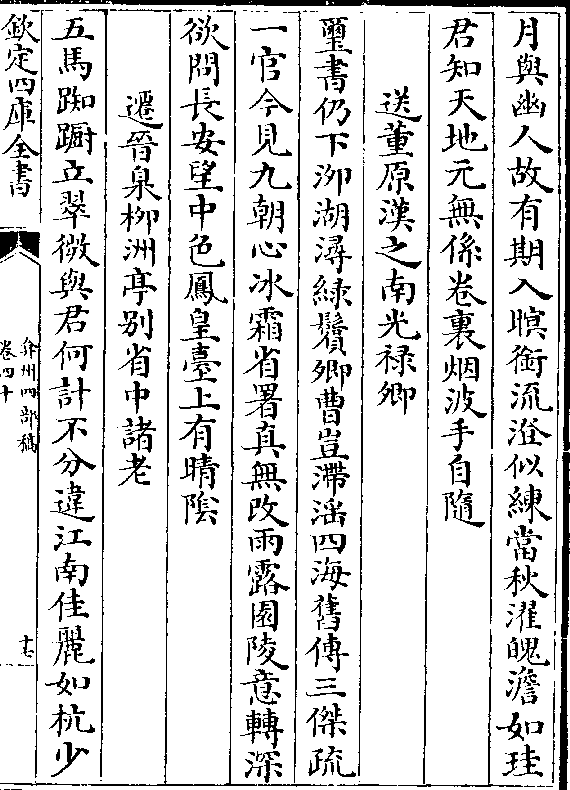 月與幽人故有期入暝銜流澄似練當秋濯魄澹如珪
君知天地元無係卷裏烟波手自隨
送董原漢之南光禄卿
璽書仍下泖湖潯綠鬢卿曹豈滯滛四海舊傳三傑疏
一官今見九朝心冰霜省署真無改雨露園陵意轉深
欲問長安望中色鳳皇臺上有晴隂
遷晉臬柳洲亭别省中諸老
五馬踟蹰立翠微與君何計不分違江南佳麗如杭少
欽定四庫全書
弇州四部稿
卷四十
十七